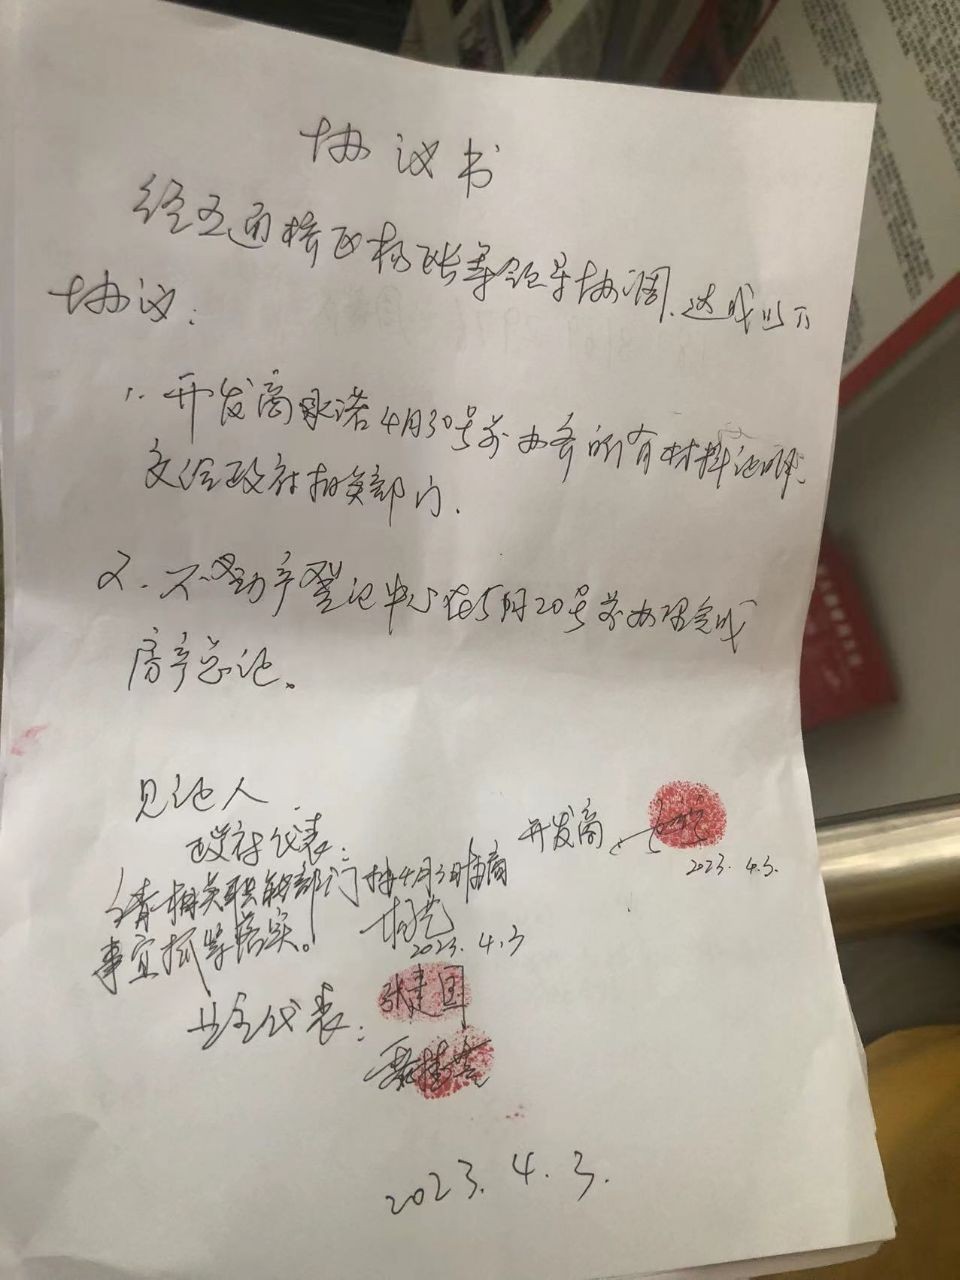 协议书
经五通桥区杨区长等领导协调.达成以下
协议：
1.开发商承诺4月30号前办齐所有材料证明.
交给政府相关部门.
2.不动产登记中心在5月20号前办理完成
房产总证。
见证人.
政府代表：
请相关职能部门按4月3日協商
事宜抓紧落实。
2023.4.3
开发商
2023.4.3.
业主代表：
张建国
2023.4.3.